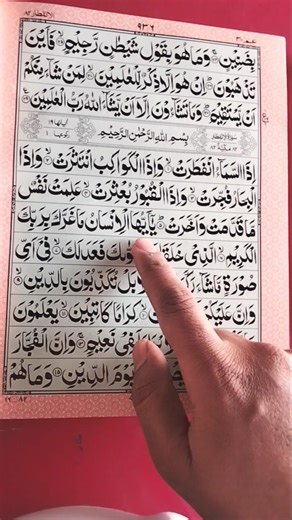 الانفطار ٨٢
٩٣٦
عمّ ٣٠
بِضَنِيْنٍ ۚ وَمَا هُوَ بِقَوْلِ شَيْطٰنٍ رَّجِيْمٍ ۙ فَاَيْنَ
تَذْهَبُوْنَ ۗ اِنْ هُوَ اِلَّا ذِكْرٌ لِّلْعٰلَمِيْنَ ۙ لِمَنْ شَآءَ مِنْكُمْ
اَنْ يَّسْتَقِيْمَ ۗ وَمَا تَشَآءُوْنَ اِلَّآ اَنْ يَّشَآءَ اللّٰهُ رَبُّ الْعٰلَمِيْنَ
بِسْمِ اللّٰهِ الرَّحْمٰنِ الرَّحِيْمِ
اِذَا السَّمَآءُ انْفَطَرَتْ ۙ وَاِذَا الْكَوَاكِبُ انْتَثَرَتْ ۙ وَاِذَا
الْبِحَارُ فُجِّرَتْ ۙ وَاِذَا الْقُبُوْرُ بُعْثِرَتْ ۙ عَلِمَتْ نَفْسٌ
مَّا قَدَّمَتْ وَاَخَّرَتْ ۗ يٰٓاَيُّهَا الْاِنْسَانُ مَا غَرَّكَ بِرَبِّكَ
الْكَرِيْمِ ۙ الَّذِيْ خَلَقَكَ فَعَدَلَكَ ۙ فِيْٓ اَيِّ
صُوْرَةٍ مَّا شَآءَ بَلْ تُكَذِّبُوْنَ بِالدِّيْنِ ۙ
وَاِنَّ عَلَيْكُمْ كِرَامًا كَاتِبِيْنَ ۙ يَعْلَمُوْنَ
لَفِيْ نَعِيْمٍ ۚ وَاِنَّ الْفُجَّارَ
يَوْمَ الدِّيْنِ ١٥ وَمَا هُمْ